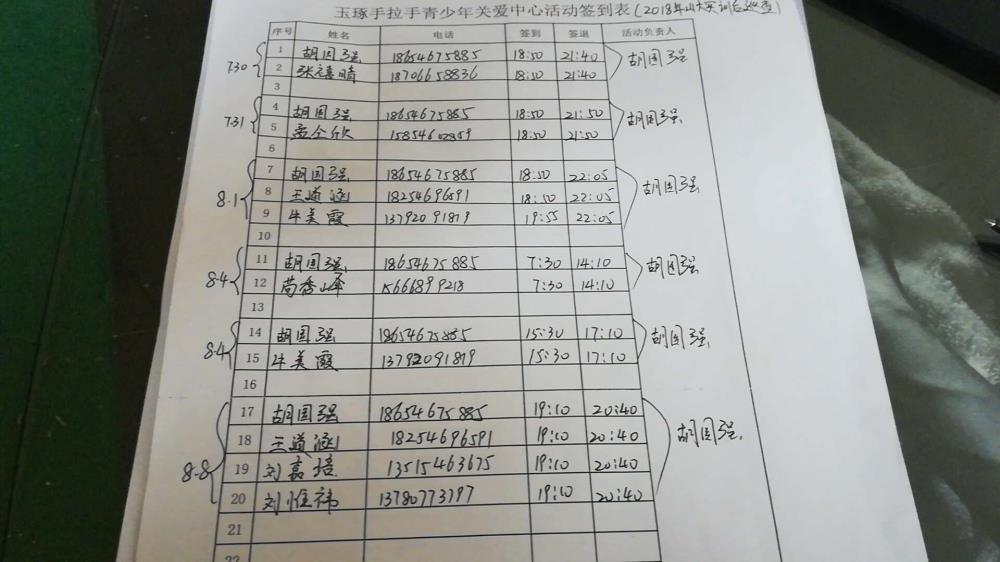 玉琢手拉手青少年关爱中心活动签到表(2018年山大实训后巡查)
序号 姓名 电话 签到 签退 活动负责人
7.30 1 胡国强 18654675885 18:50 21:40 胡国强
2 张禧晴 18706658836 18:50 21:40
3
7.31 4 胡国强 18654675885 18:50 21:50 胡国强
5 孟令欣 18:50 21:50
6
8.1 7 胡国强 18654675885 18:50 22:05 胡国强
8 王道涵 18254696591 18:50 22:05
9 牛美霞 13792091819 19:55 22:05
10
8.4 11 胡国强 18654675885 7:30 14:10 胡国强
12 苟秀峰 15661899218 7:30 14:10
13
8.4 14 胡国强 18654675885 15:30 17:10 胡国强
15 牛美霞 13792091819 15:30 17:10
16
8.8 17 胡国强 18654675885 19:10 20:40 胡国强
18 王道涵 18254696591 19:10 20:40
19 刘嘉培 13515463675 19:10 20:40
20 刘惟祎 13780773797 19:10 20:40
21
22